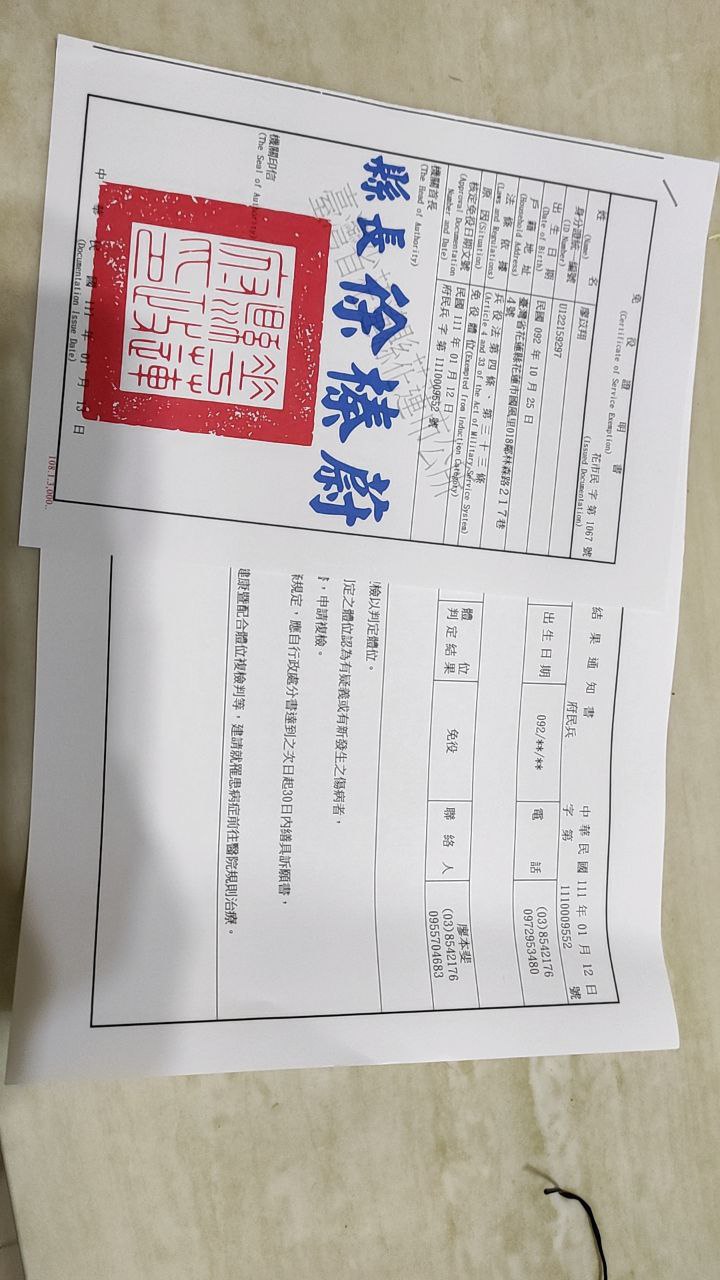 免役證明書
(Certificate of Service Exemption)
花市民字第 1067 號
(Issued Documentation)
姓名
(Name)
廖苡翔
身分證統一編號
(ID Number)
U122159297
出生日期
(Date of Birth)
民國 092 年 10 月 25 日
戶籍地址
(Household Address)
臺灣省花蓮縣花蓮市國風里018鄰林森路217巷
4號
法條依據
(Laws and Regulations)
兵役法第四條、第三十三條
(Article 4 and 33 of the Act of Military Service System)
原因(Situation)
免役體位(Exempted from Induction Category)
核定免役日期文號
(Approval Documentation
Number and Date)
民國 111 年 01 月 12 日
府民兵字第 1110009552 號
機關首長
(The Head of Authority)
縣長徐榛蔚
機關印信
(The Seal of Authority)
中華民國 111 年 01 月 13 日
(Documentation Issue Date)
108.1.3,000.
結果通知書
中華民國 111 年 01 月 12 日
府民兵字第 1110009552 號
出生日期
092/**/**
電話
(03)8542176
0972953480
體位
判定結果
免役
聯絡人
廖本斐
(03)8542176
0955704683
檢以判定體位。
定之體位認為有疑義或有新發生之傷病者，
，申請複檢。
規定，應自行政處分書達到之次日起30日內繕具訴願書，
建康暨配合體位複檢判等，建請就罹患病症前往醫院規則治療。